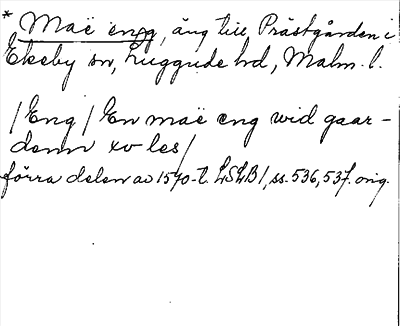 * Maë eng, äng till Prästgården i
Ekeby sn, Luggude hd, Malm. l.
/Eng/ En maë eng wid gaar-
denn xv les/
förra delen av 1570-t. LSLB/, ss. 536, 537. orig.